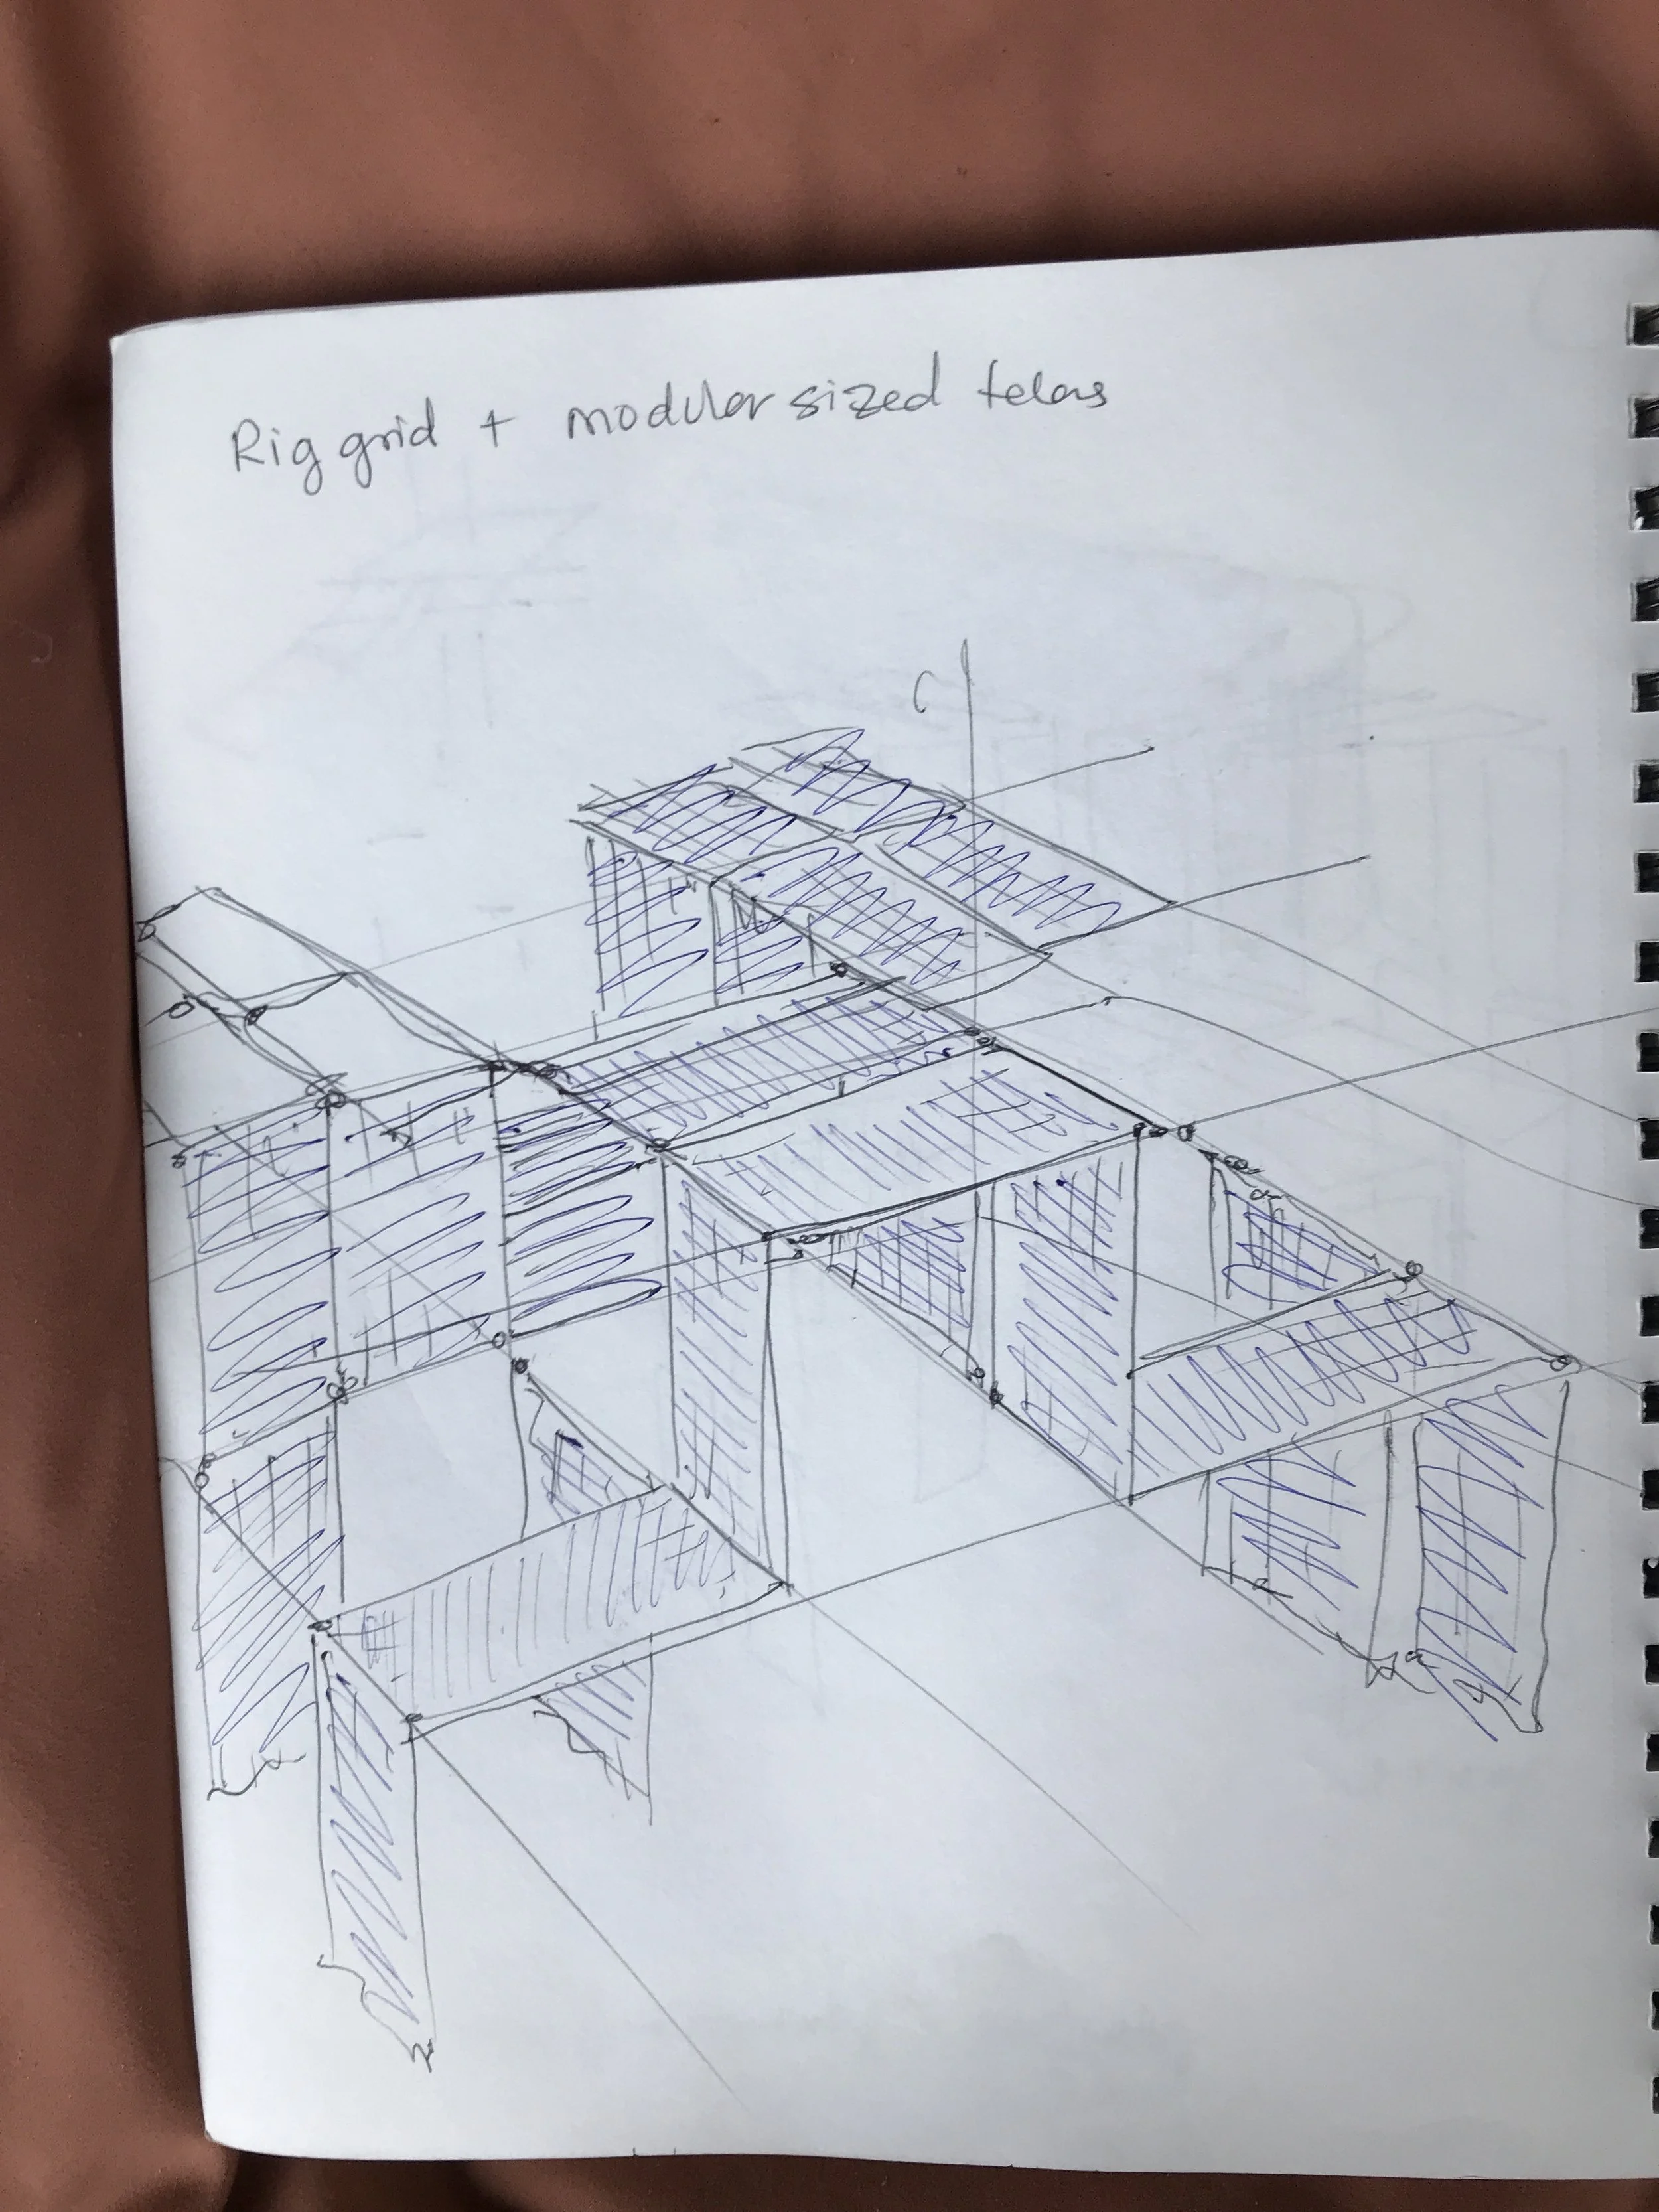 Rig grid + modular sized telas